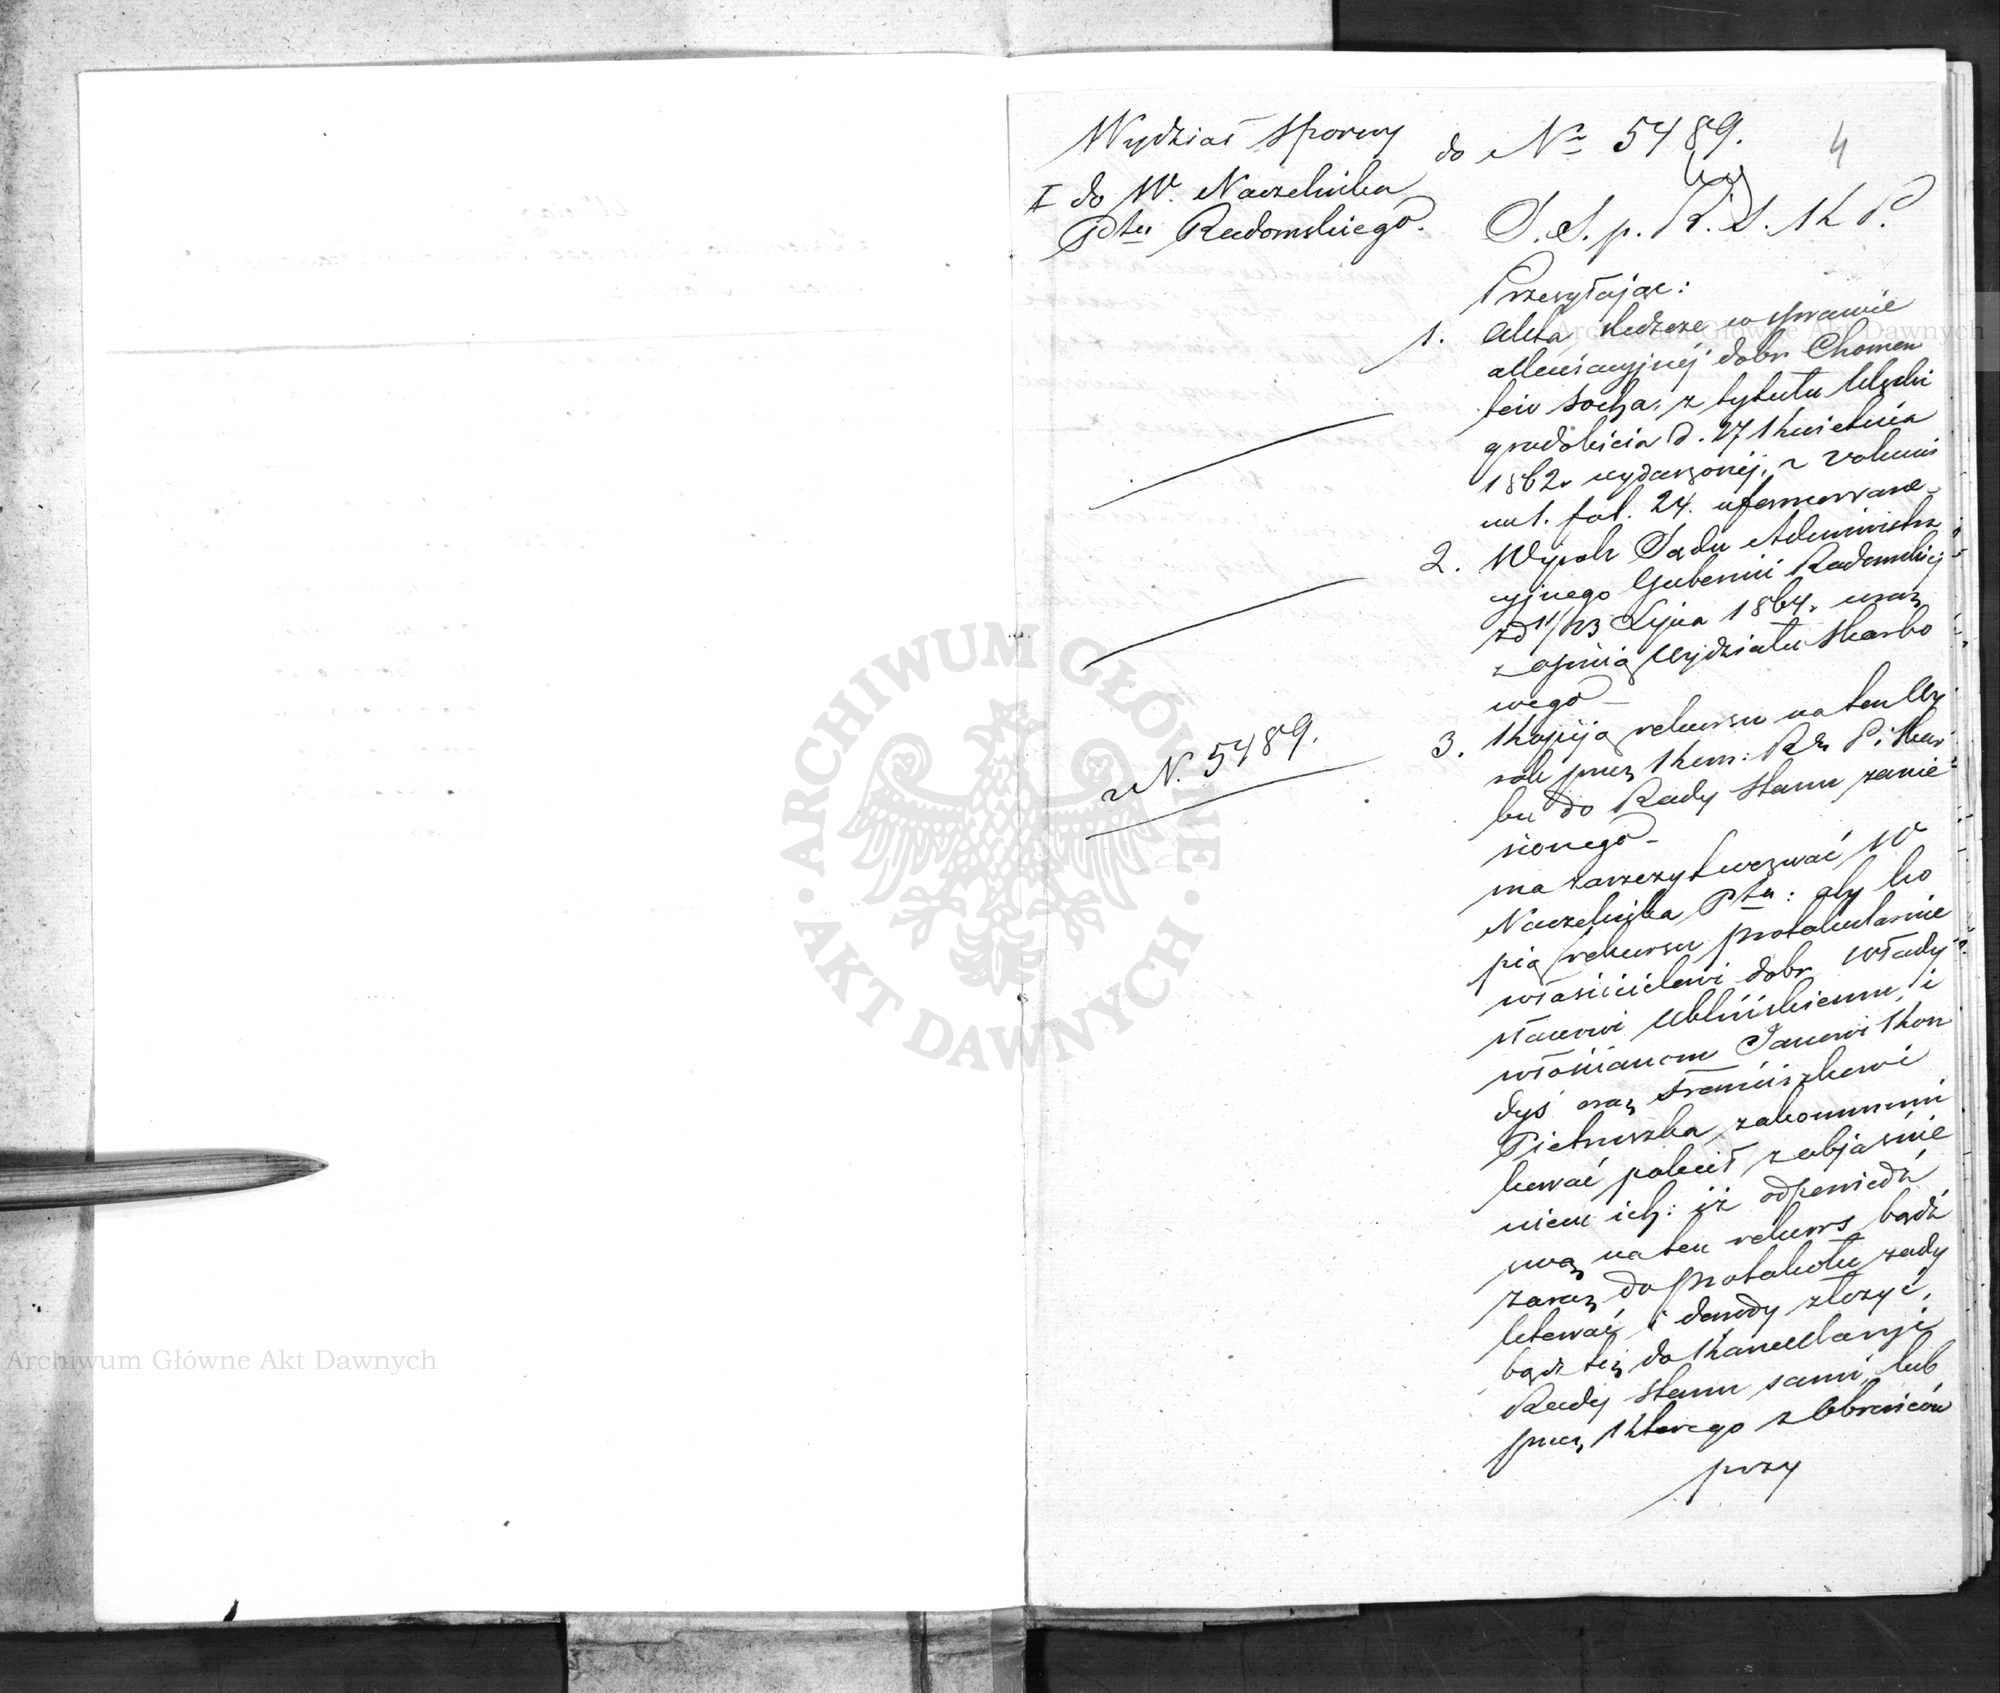 Wydział sporny
I do W. Naczelnika
Ptu Radomskiego.
do Nr 5489.
4
S. S. p. R. S. K P.
Przesyłając:
1. Akta śledcze w sprawie
allewiacyjnej dobr Chomen
tów Socha, z tytułu klęski
gradobicia d. 27 Kwietnia
1862 r wydarzonej, z Volumi
nu 1. fol. 24. uformowane –
2. Wyrok Sądu Administra
cyjnego Gubernii Radomskiej
z d 11/23 Lipca 1864 r wraz
z opinią Wydziału Skarbo
wego –
3. Kopiją rekursu na ten Wy
rok przez Kom: Rz P. i Skar
bu do Rady Stanu zanie
sionego –
N. 5489.
ma zaszczyt wezwać W
Naczelnika Ptu: aby ko
pią rekursu protokularnie
właścicielowi dobr Włady
sławowi Ublińskiemu, i
włościanom Janowi Kon
dyś oraz Franciszkowi
Pietruszka zakommuni
kować polecił z objaśnie
niem ich: iż odpowiedź
swą na ten rekurs bądź
zaraz do protokołu zady
ktować i dowody złożyć,
bądź też do Kancellaryi
Rady Stanu sami, lub
przez Którego z Obrońców
przy
Archiwum Główne Akt Dawnych
Archiwum Główne Akt Dawnych
ARCHIWUM GŁÓWNE · AKT DAWNYCH ·